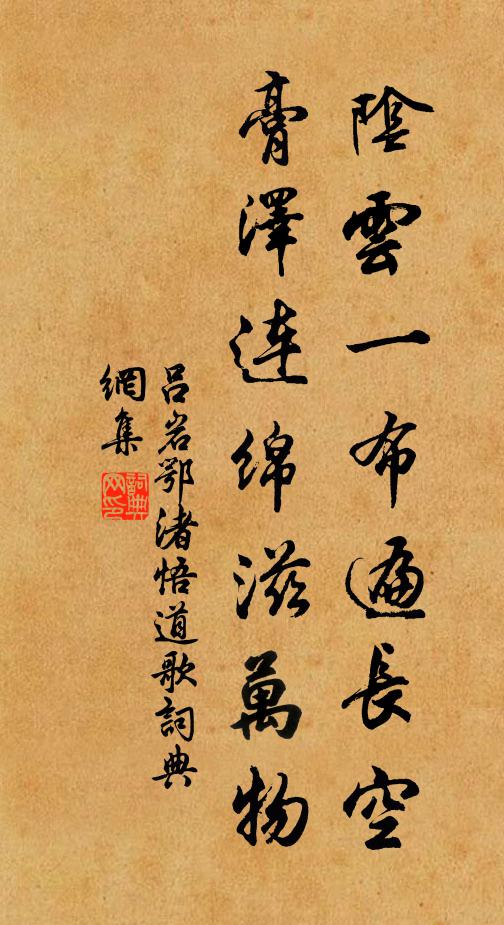 陰雲一布遍長空
膏澤连綿滋萬物
呂岩鄂渚悟道歌詞典
網集
詞典
网印